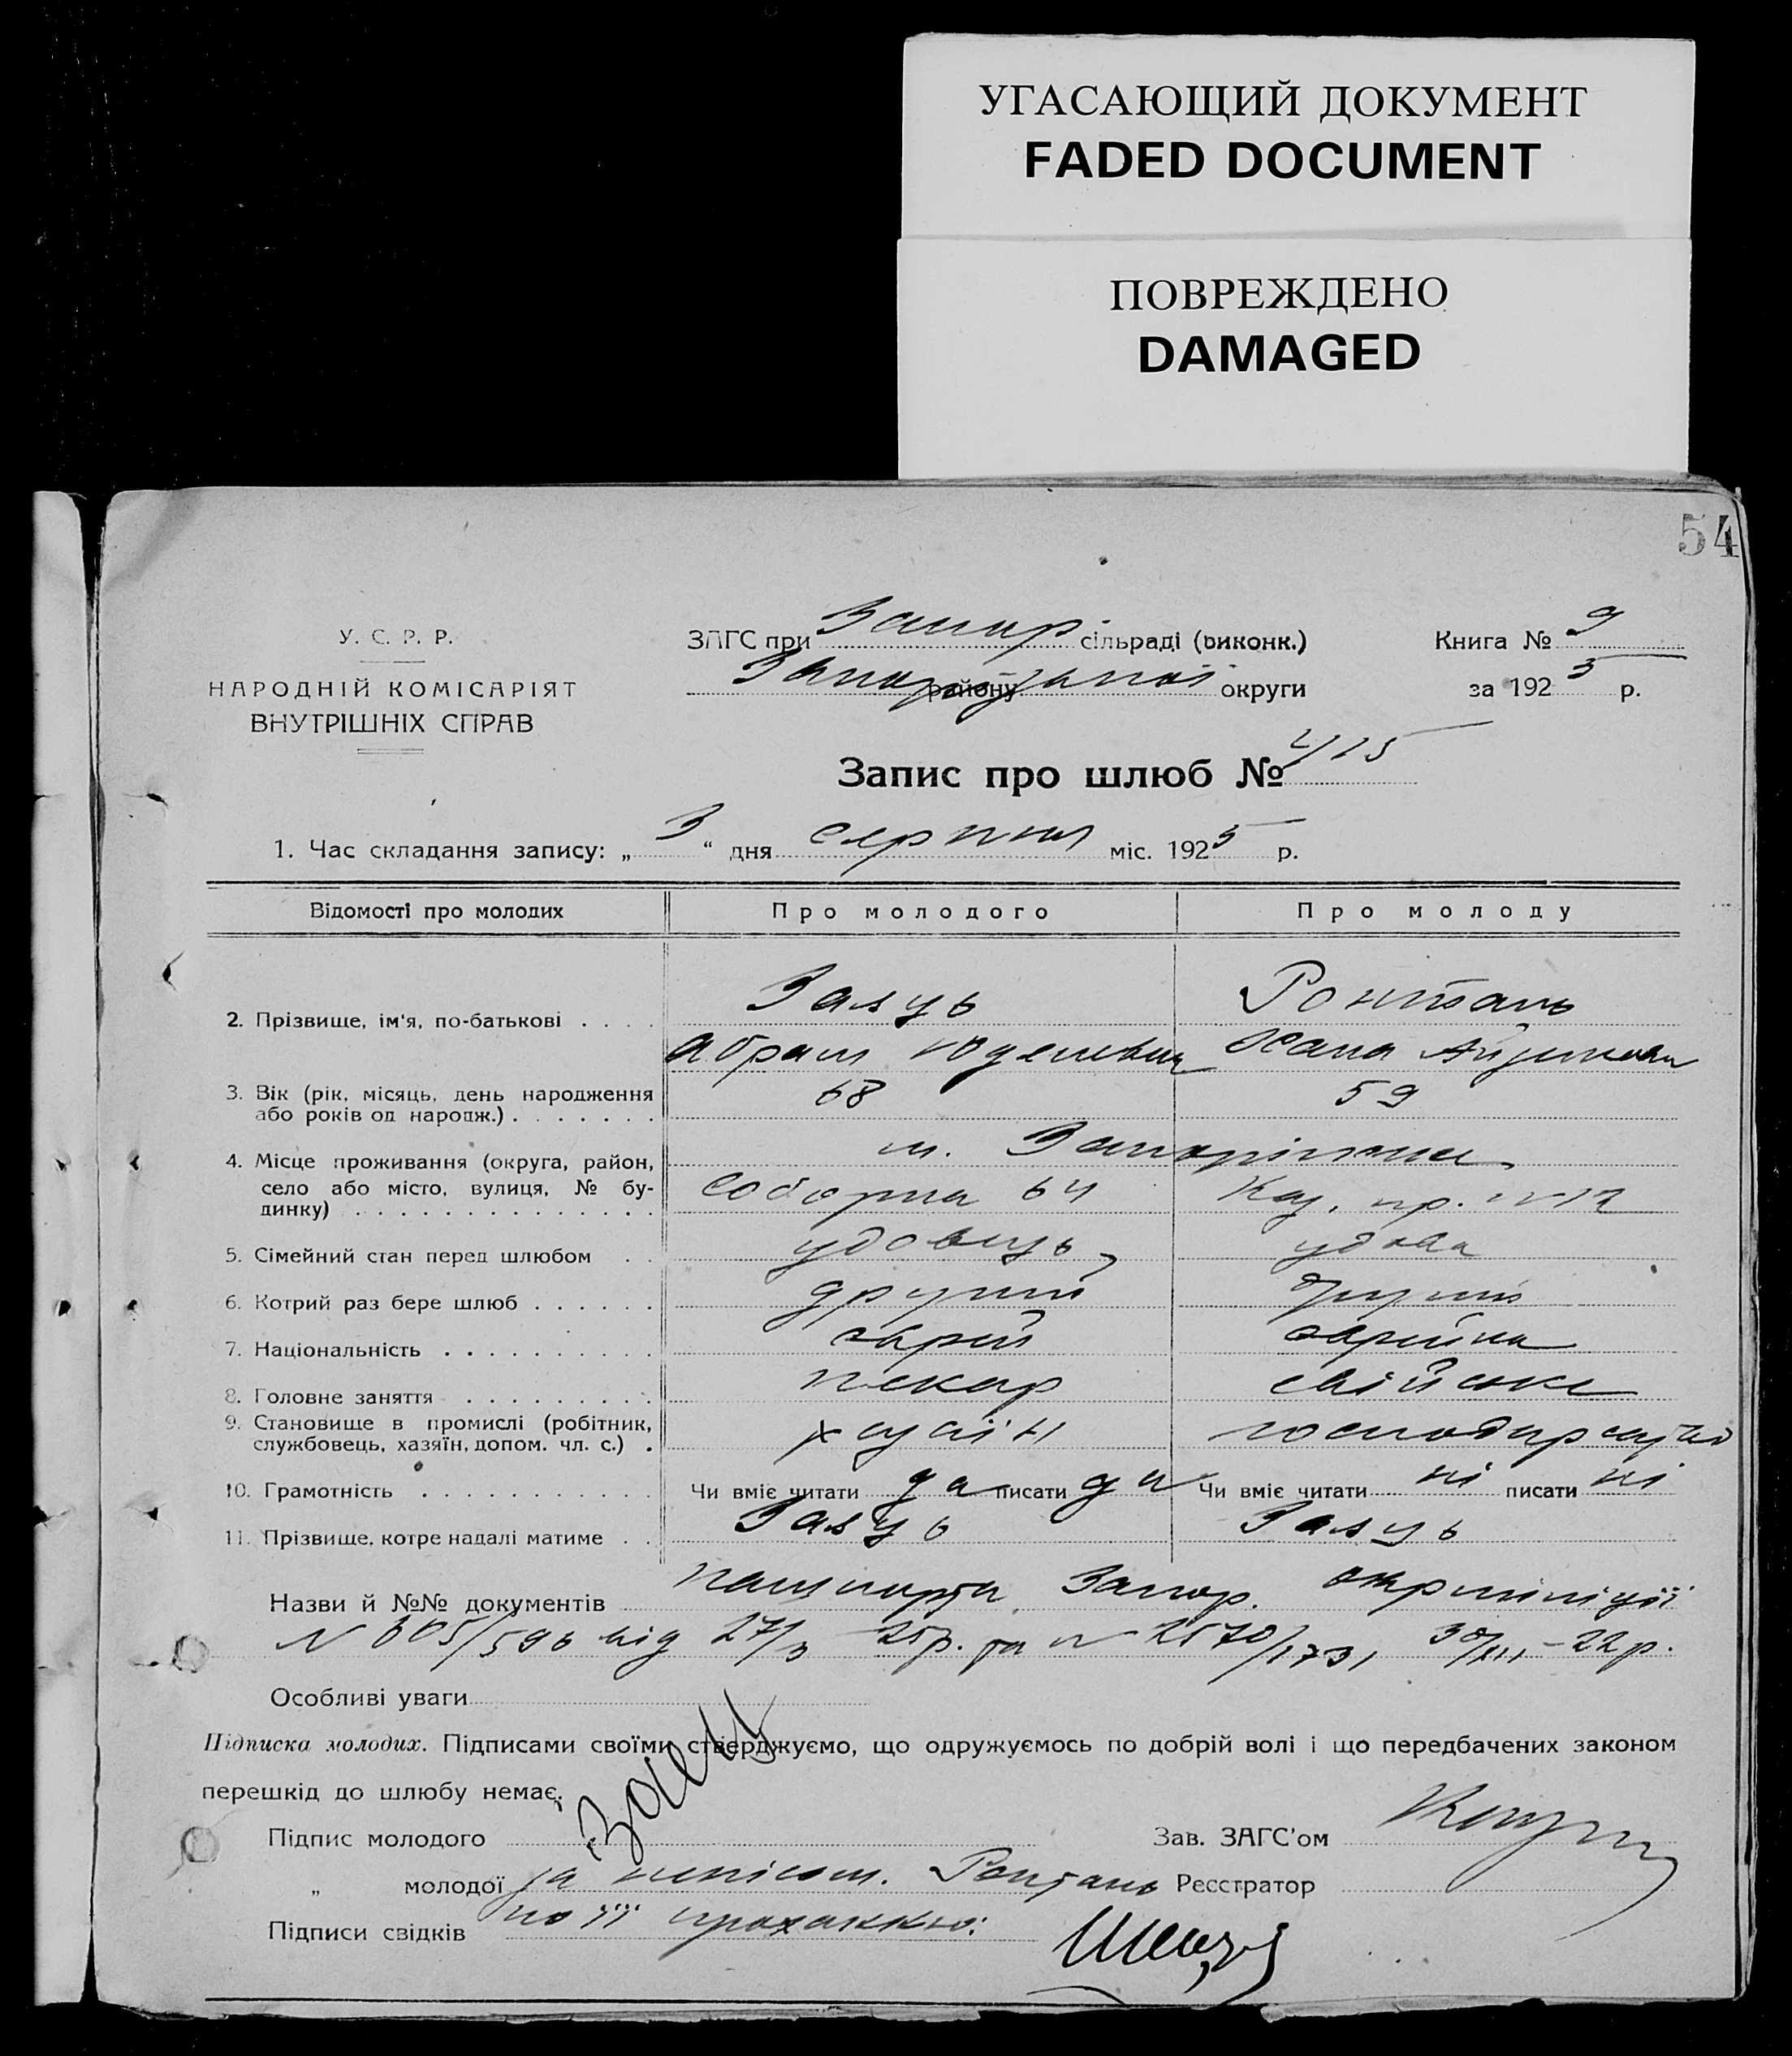 УГАСАЮЩИЙ ДОКУМЕНТ
FADED DOCUMENT
ПОВРЕЖДЕНО
DAMAGED
54
У. С. Р. Р.
НАРОДНІЙ КОМІСАРІЯТ
ВНУТРІШНІХ СПРАВ
ЗАГС при Запор. сільраді (виконк.)
району Запорізької округи
Книга № 9
за 1925 р.
Запис про шлюб № 415
1. Час складання запису: „ 3 “ дня серпня міс. 1925 р.
Відомості про молодих Про молодого Про молоду
2. Прізвище, ім'я, по-батькові . . . . Залуь
Абрам Юделевич Хана
3. Вік (рік, місяць, день народження
або років од народж.) . . . . . . . 68 59
4. Місце проживання (округа, район,
село або місто, вулиця, № бу-
динку) . . . . . . . . . . . . . . .
м. Запоріжжя
Соборна 64 Каз. пр. № 12
5. Сімейний стан перед шлюбом . . удовець удова
6. Котрий раз бере шлюб . . . . . . другий другий
7. Національність . . . . . . . . . . єврей єврейка
8. Головне заняття . . . . . . . . . . пекар свійське
9. Становище в промислі (робітник,
службовець, хазяїн, допом. чл. с.) . хазяїн господарство
10. Грамотність . . . . . . . . . . . Чи вміє читати да писати да Чи вміє читати ні писати ні
11. Прізвище, котре надалі матиме . . Залуь Залуь
Назви й №№ документів пашпорти Запор. окрміліції
N 605/596 від 27/3 25 р. та N 2570/1731 30/XII – 22 р.
Особливі уваги
Підписка молодих. Підписами своїми стверджуємо, що одружуємось по добрій волі і що передбачених законом
перешкід до шлюбу немає.
Підпис молодого
Зав. ЗАГС'ом
„ молодої за неписом.
Реєстратор
Підписи свідків по її проханню: